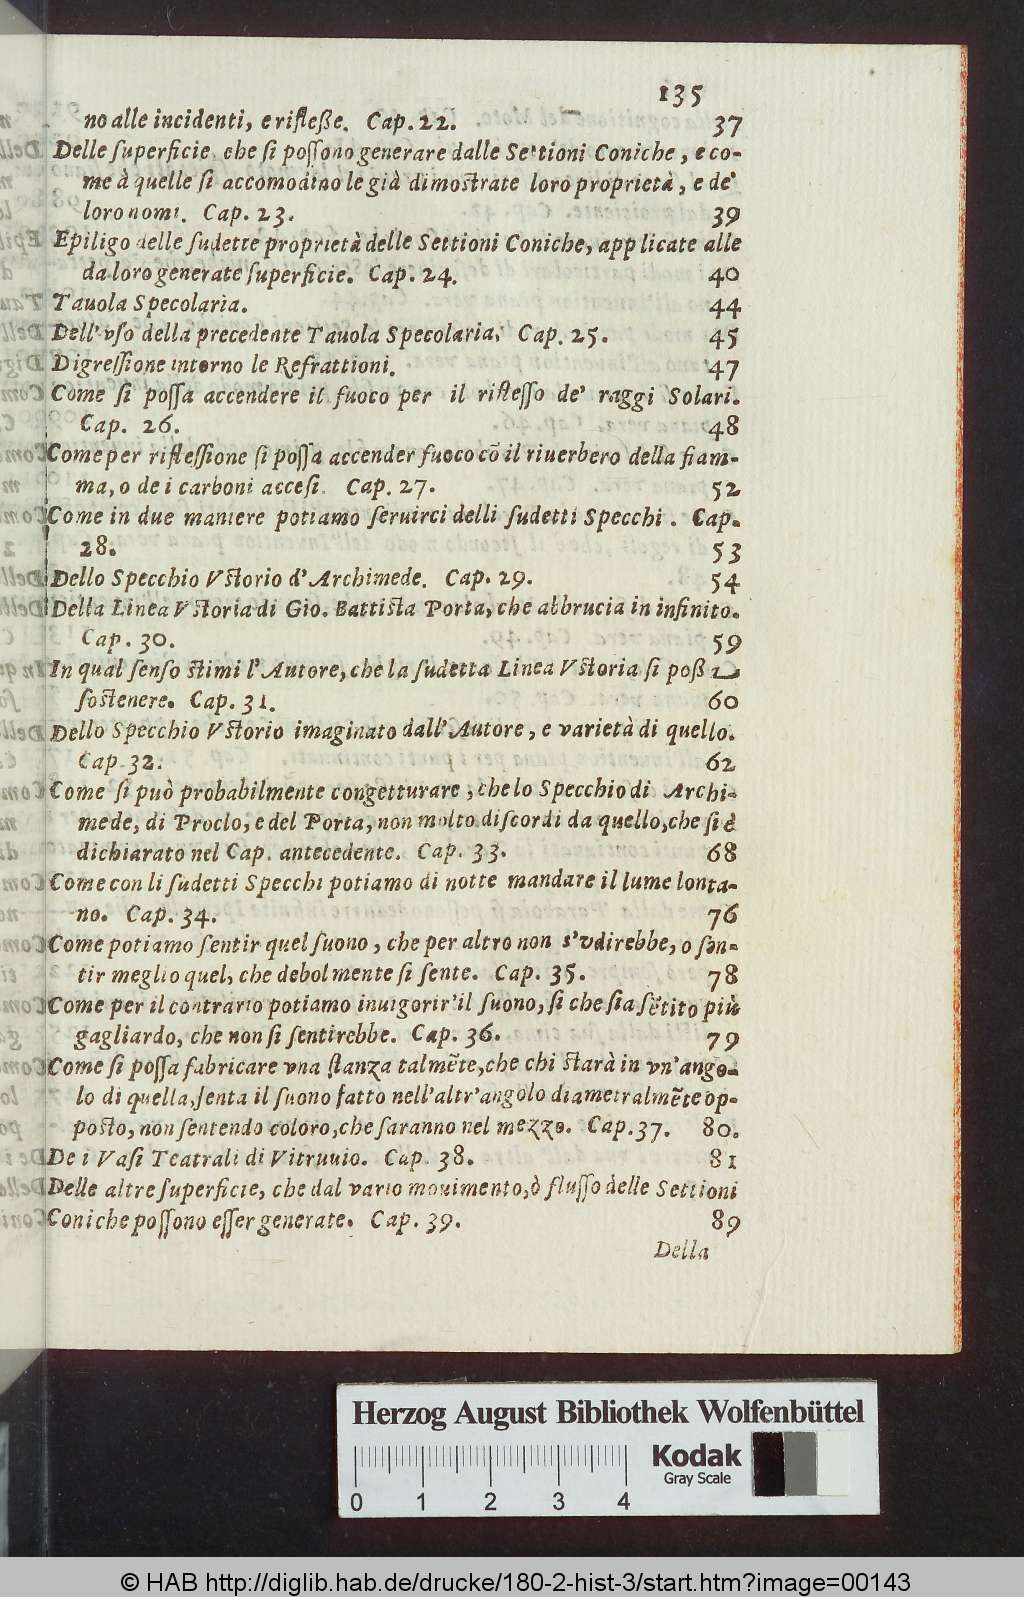 135
no alle incidenti, e rifleße. Cap. 22. 37
Delle superficie che si possono generare dalle Settioni Coniche, e co-
me à quelle si accomodino le già dimostrate loro proprietà, e de'
loro nomi. Cap. 23. 39
Epiligo delle sudette proprietà delle Settioni Coniche, applicate alle
da loro generate superficie. Cap. 24. 40
Tauola Specolaria. 44
Dell'vso della precedente Tauola Specolaria. Cap. 25. 45
Digressione intorno le Refrattioni. 47
Come si possa accendere il fuoco per il riflesso de' raggi Solari.
Cap. 26. 48
Come per riflessione si possa accender fuoco cõ il riuerbero della fiam-
ma, o de i carboni accesi. Cap. 27. 52
Come in due maniere potiamo seruirci delli sudetti Specchi. Cap.
28. 53
Dello Specchio Vstorio d'Archimede. Cap. 29. 54
Della Linea Vstoria di Gio. Battista Porta, che abbrucia in infinito.
Cap. 30. 59
In qual senso stimi l'Autore, che la sudetta Linea Vstoria si poß
sostenere. Cap. 31. 60
Dello Specchio Vstorio imaginato dall'Autore, e varietà di quello.
Cap. 32. 62
Come si può probabilmente congetturare, che lo Specchio di Archi-
mede, di Proclo, e del Porta, non molto discordi da quello, che si è
dichiarato nel Cap. antecedente. Cap. 33. 68
Come con li sudetti Specchi potiamo di notte mandare il lume lonta-
no. Cap. 34. 76
Come potiamo sentir quel suono, che per altro non s'vdirebbe, o sen-
tir meglio quel, che debolmente si sente. Cap. 35. 78
Come per il contrario potiamo inuigorir'il suono, si che sia sẽtito più
gagliardo, che non si sentirebbe. Cap. 36. 79
Come si possa fabricare vna stanza talmẽte, che chi starà in vn'ango-
lo di quella, senta il suono fatto nell'altr'angolo diametralmẽte op-
posto, non sentendo coloro, che saranno nel mezzo. Cap. 37. 80.
De i Vasi Teatrali di Vitruuio. Cap. 38. 81
Delle altre superficie, che dal vario mouimento, ò flusso delle Settioni
Coniche possono esser generate. Cap. 39. 89
Della
Herzog August Bibliothek Wolfenbüttel
Kodak
Gray Scale
0 1 2 3 4
© HAB http://diglib.hab.de/drucke/180-2-hist-3/start.htm?image=00143